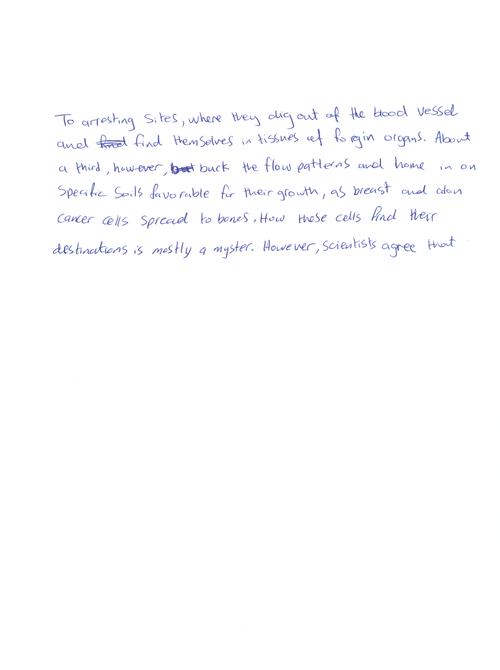 To arresting Sites, where they dig out of the blood vessel
and find themselves in tissues of foregin organs. About
a third, however, buck the flow patterns and home in on
Specific Soils favorable for their growth, as breast and colon
cancer cells spread to bones. How these cells find their
destinations is mostly a myster. However, scientists agree that